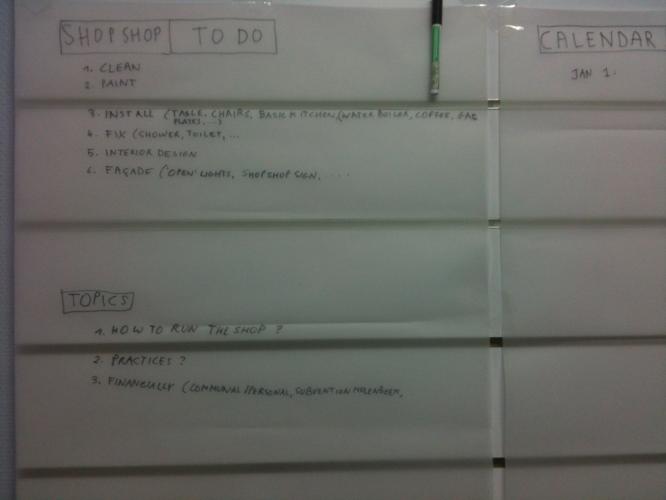 SHOPSHOP TO DO
1. CLEAN
2. PAINT
3. INSTALL (TABLE, CHAIRS, BASIC KITCHEN, (WATER BOILER, COFFEE, GAS
PLATES, ...)
4. FIX (SHOWER, TOILET, ...
5. INTERIOR DESIGN
6. FAÇADE ('OPEN' LIGHTS, SHOPSHOP SIGN, ....
TOPICS
1. HOW TO RUN THE SHOP ?
2. PRACTICES ?
3. FINANCIALLY (COMMUNAL/PERSONAL, SUBVENTION MOLENBEEK,
CALENDAR
JAN 1.